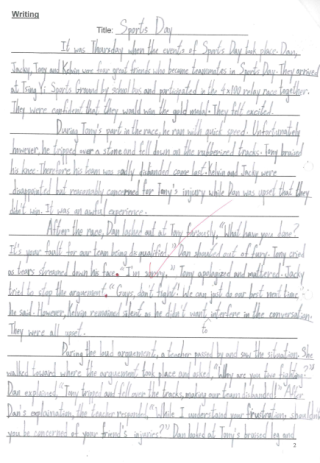 Writing
Title: Sports Day
It was Thursday when the events of Sports Day took place. Dan,
Jacky, Tony and Kelvin were four great friends who became teammates in Sports Day. They arrived
at Tsing Yi Sports Ground by school bus and participated in the 4x100 relay race together.
They were confident that they would win the gold medal. They felt excited.
During Tony's part in the race, he ran with quick speed. Unfortunately
however, he tripped over a stone and fell down on the rubberised tracks. Tony bruised
his knee. Therefore his team was sadly disbanded Kelvin and Jacky were
disappointed but reasonably concerned for Tony's injury while Dan was upset that they
didn't win. It was an awful experience.
After the race, Dan lashed out at Tony furiously. "What have you done?
It's your fault for our team being disqualified." Dan shouted out of fury. Tony cried
as tears streamed down his face. "I'm sorry." Tony apologized and muttered. Jacky
tried to stop the argument. "Guys, don't fight! We can do our best next time,"
he said. However, Kelvin remained silent as he didn't want interfere in the conversation.
to
They were all upset.
During the loud argument, a teacher passed by and saw the situation. She
walked toward where the argument took place and asked, "Why are you two fighting?"
Dan explained, "Tony tripped and fell over the tracks, making our team disbanded." After
Dan's explanation, the teacher responded, "While I understand your frustration, shouldn't
you be concerned of your friend's injuries?" Dan looked at Tony's bruised leg and
2